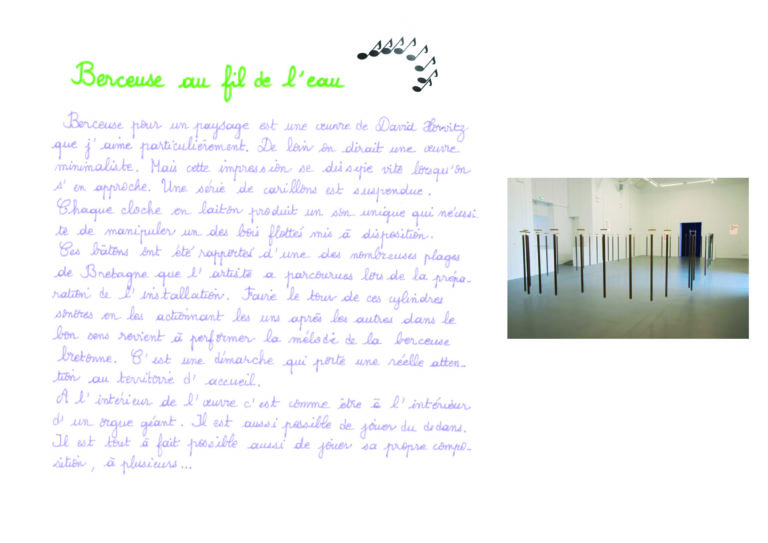 Berceuse au fil de l'eau
Berceuse pour un paysage est une œuvre de David Horvitz
que j'aime particulièrement. De loin on dirait une œuvre
minimaliste. Mais cette impression se dissipe vite lorsqu'on
s'en approche. Une série de carillons est suspendue.
Chaque cloche en laiton produit un son unique qui nécessi
te de manipuler un des bois flottés mis à disposition.
Ces bâtons ont été rapportés d'une des nombreuses plages
de Bretagne que l'artiste a parcourues lors de la prépa-
ration de l'installation. Faire le tour de ces cylindres
sonores en les actionnant les uns après les autres dans le
bon sens revient à performer la mélodie de la berceuse
bretonne. C'est une démarche qui porte une réelle atten-
tion au territoire d'accueil.
A l'intérieur de l'œuvre c'est comme être à l'intérieur
d'un orgue géant. Il est aussi possible de jouer du dedans.
Il est tout à fait possible aussi de jouer sa propre compo-
sition, à plusieurs...